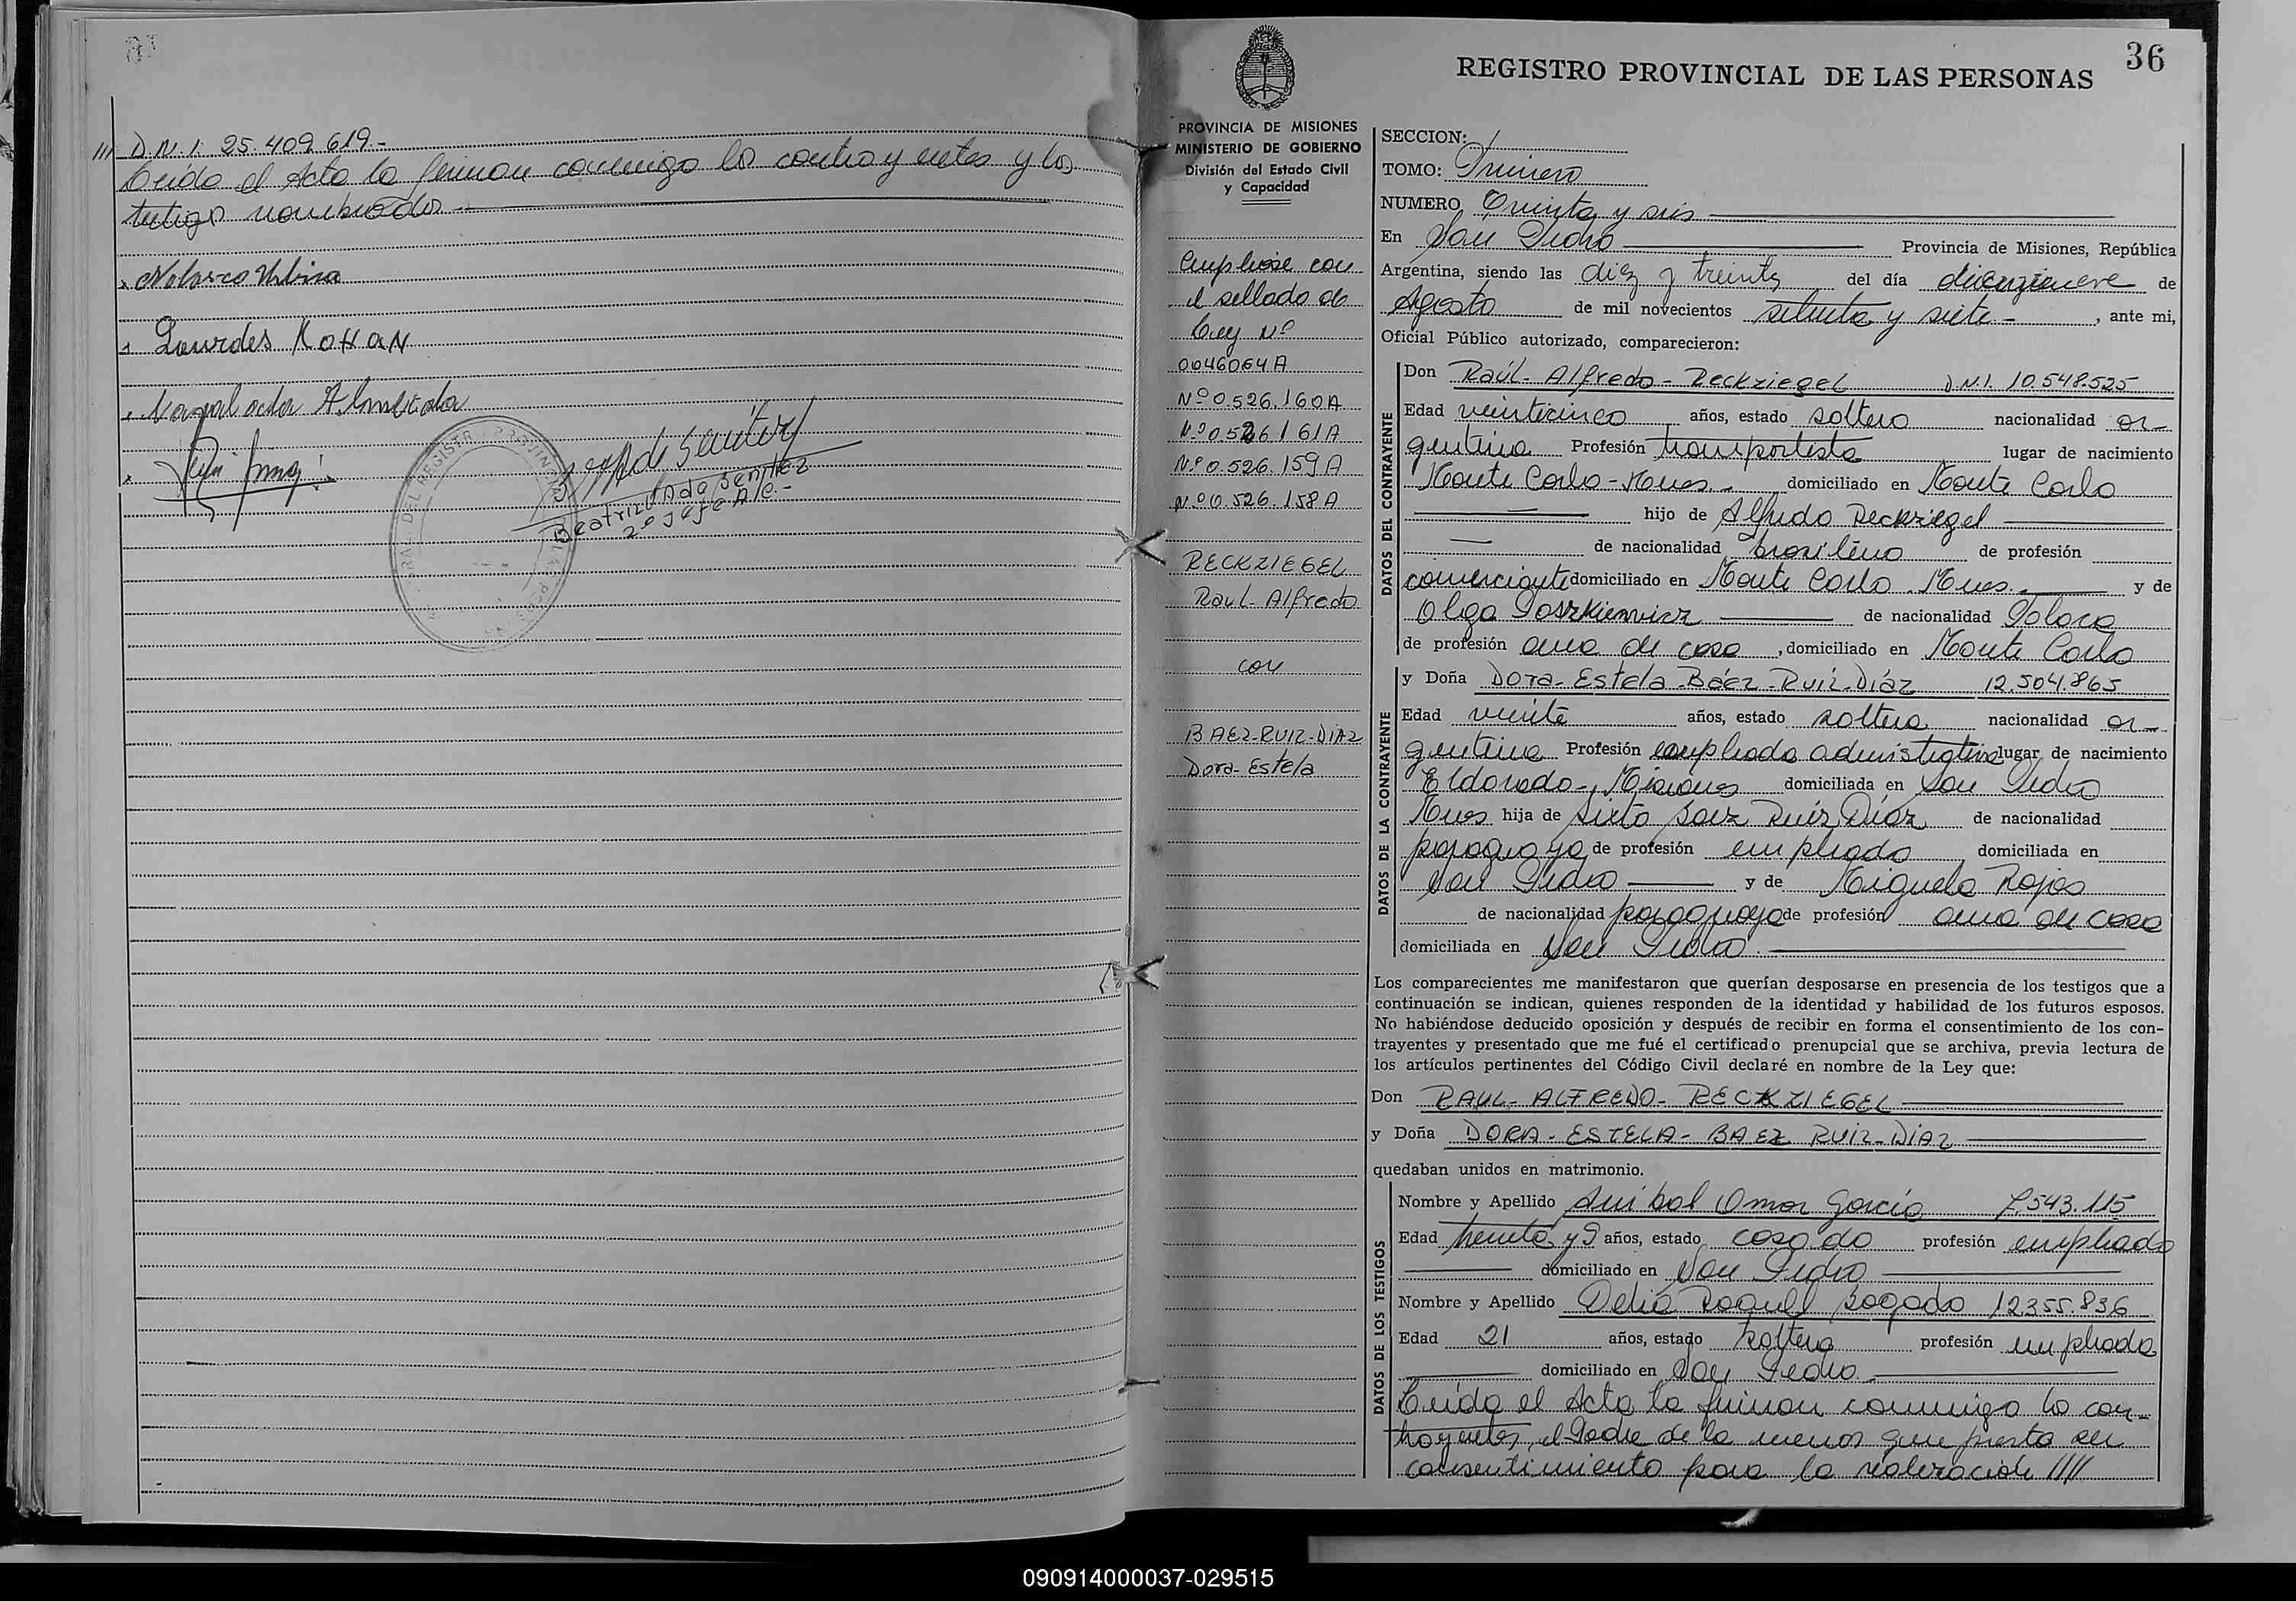 /// D.N.I. 25.409.619.-
Leída el Acta la firman conmigo los contrayentes y los
testigos nombrados.-
Lourdes KOHAN
Beatriz
2º Jefe
36
REGISTRO PROVINCIAL DE LAS PERSONAS
PROVINCIA DE MISIONES
MINISTERIO DE GOBIERNO
División del Estado Civil
y Capacidad
Cumplióse con
el sellado de
Ley Nº
0046064A
Nº 0.526.160A
Nº 0.526161A
Nº 0.526.159A
Nº 0.526.158A
RECKZIEGEL
Raul-Alfredo
con
BAEZ-RUIZ-DIAZ
Dora-Estela
SECCION:
TOMO: Primero
NUMERO Treinta y seis
En San Pedro Provincia de Misiones, República
Argentina, siendo las diez y treinta del día diecinueve de
Agosto de mil novecientos setenta y siete- , ante mi,
Oficial Público autorizado, comparecieron:
DATOS DEL CONTRAYENTE
Don Raúl-Alfredo-Reckziegel D.N.I. 10.548.525
Edad veinticinco años, estado soltero nacionalidad ar-
gentina Profesión transportista lugar de nacimiento
Monte Carlo-Mnes.- domiciliado en Monte Carlo
hijo de Alfredo Reckziegel
de nacionalidad brasilera de profesión
comerciante domiciliado en Monte Carlo.Mnes. y de
Olga Poszkiewicz de nacionalidad Polaca
de profesión ama de casa , domiciliado en Monte Carlo
DATOS DE LA CONTRAYENTE
y Doña Dora-Estela-Báez-Ruiz-Díaz 12.504.865
Edad veinte años, estado soltera nacionalidad ar-
gentina Profesión empleada administrativa lugar de nacimiento
Eldorado-, Misiones domiciliada en San Pedro
Mnes hija de Sixto Baez Ruiz Díaz de nacionalidad
paraguaya de profesión empleado domiciliada en
San Pedro y de Miguela Rojas
de nacionalidad paraguaya de profesión ama de casa
domiciliada en San Pedro.
Los comparecientes me manifestaron que querían desposarse en presencia de los testigos que a
continuación se indican, quienes responden de la identidad y habilidad de los futuros esposos.
No habiéndose deducido oposición y después de recibir en forma el consentimiento de los con-
trayentes y presentado que me fué el certificado prenupcial que se archiva, previa lectura de
los artículos pertinentes del Código Civil declaré en nombre de la Ley que:
Don RAUL-ALFREDO-RECKZIEGEL
y Doña DORA-ESTELA-BAEZ RUIZ-DIAZ
quedaban unidos en matrimonio.
DATOS DE LOS TESTIGOS
Nombre y Apellido Anibal Omar García 7.543.115
Edad treinta y 9 años, estado casado profesión empleado
domiciliado en San Pedro
Nombre y Apellido Delia Raquel Bogado 12.355.836
Edad 21 años, estado soltera profesión empleada
domiciliado en San Pedro.
Leída el Acta la firman conmigo los con-
trayentes, el Padre de la menor que presta su
consentimiento para la realización ////
090914000037-029515